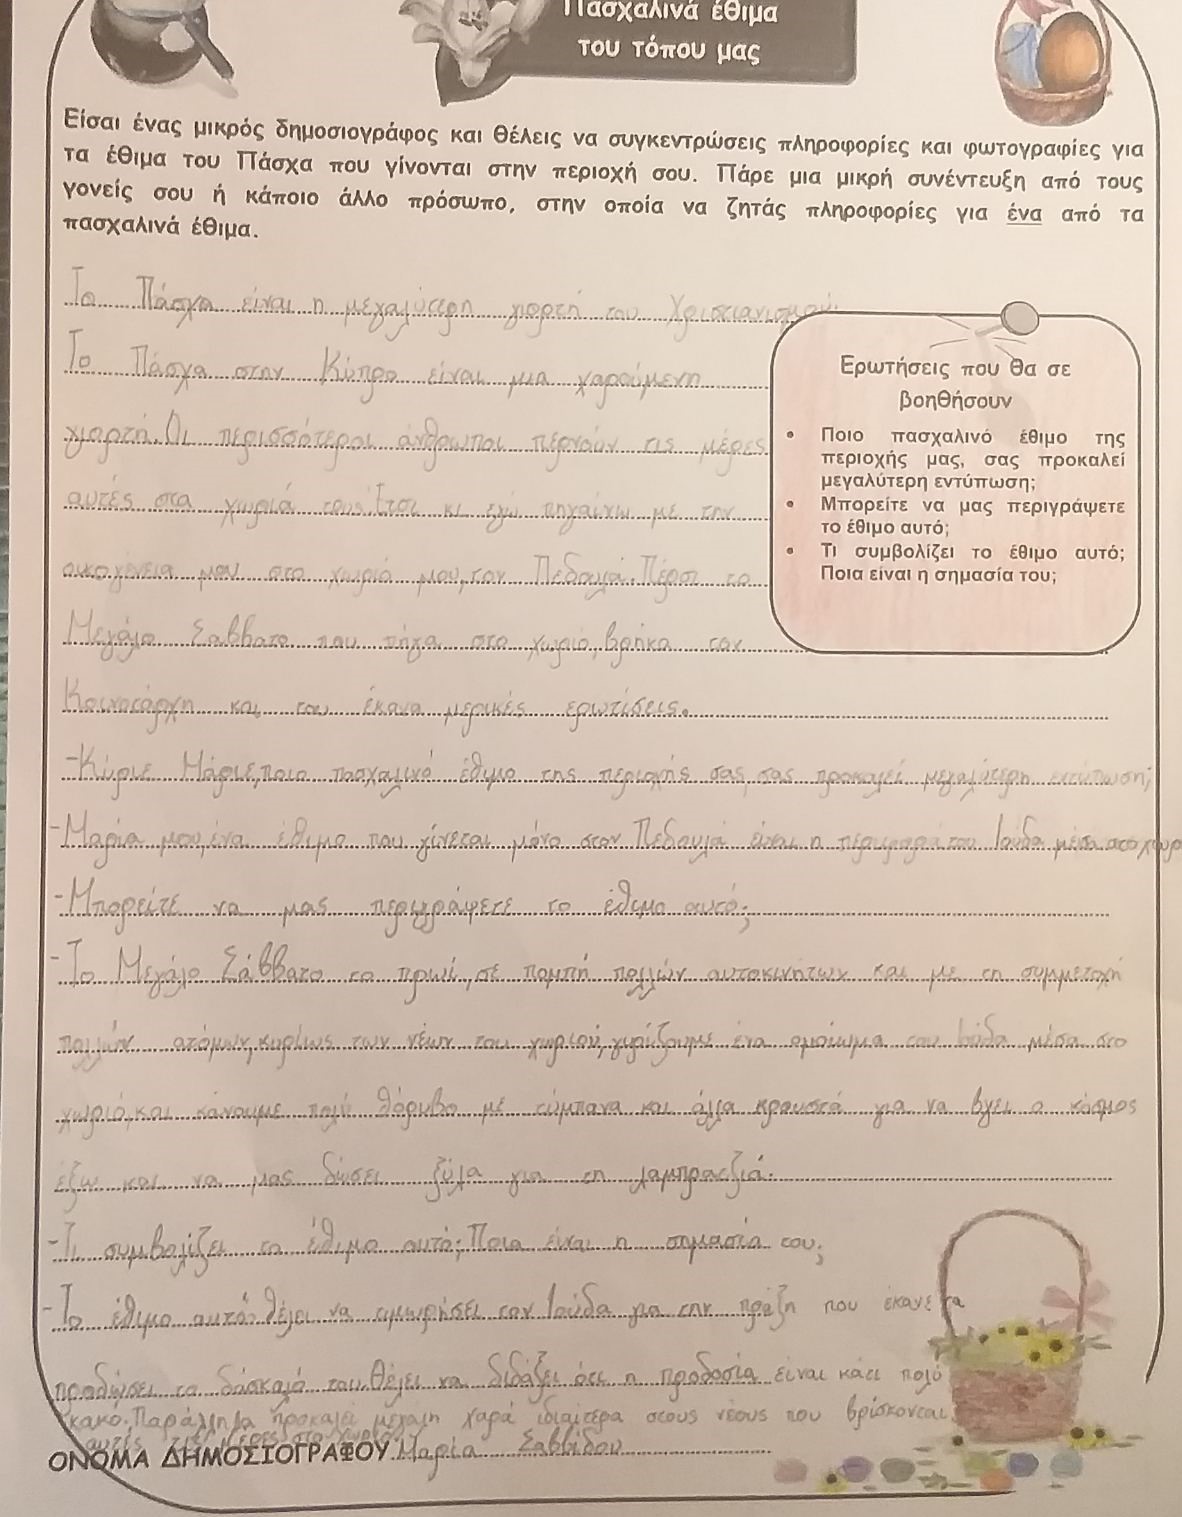 Πασχαλινά έθιμα
του τόπου μας
Είσαι ένας μικρός δημοσιογράφος και θέλεις να συγκεντρώσεις πληροφορίες και φωτογραφίες για
τα έθιμα του Πάσχα που γίνονται στην περιοχή σου. Πάρε μια μικρή συνέντευξη από τους
γονείς σου ή κάποιο άλλο πρόσωπο, στην οποία να ζητάς πληροφορίες για ένα από τα
πασχαλινά έθιμα.
Το Πάσχα είναι η μεγαλύτερη γιορτή του Χριστιανισμού.
Το Πάσχα στην Κύπρο είναι μια χαρούμενη
γιορτή. Οι περισσότεροι άνθρωποι περνούν τις μέρες
αυτές στα χωριά τους. Έτσι κι εγώ πηγαίνω με την
οικογένεια μου στο χωριό μου, τον Πεδουλά. Πέρσι το
Μεγάλο Σαββατο που πήγα στο χωριό, βρήκα τον
Κοινοτάρχη και του έκανα μερικές ερωτίσεις.
Ερωτήσεις που θα σε
βοηθήσουν
• Ποιο πασχαλινό έθιμο της
περιοχής μας, σας προκαλεί
μεγαλύτερη εντύπωση;
• Μπορείτε να μας περιγράψετε
το έθιμο αυτό;
• Τι συμβολίζει το έθιμο αυτό;
Ποια είναι η σημασία του;
-Κύριε Μάριε, ποιο πασχαλινό έθιμο της περιοχής σας, σας προκαλεί μεγαλύτερη εντύπωση;
-Μαρία μου, ένα έθιμο που γίνεται μόνο στον Πεδουλά είναι η περιφορά του Ιούδα μέσα στο χωρ
-Μπορείτε να μας περιγράψετε το έθιμο αυτό;
-Το Μεγάλο Σάββατο το πρωί, σε πομπή πολλών αυτοκινήτων και με τη συμμετοχή
πολλών ατόμων, κυρίως των νέων του χωριού, γυρίζουμε ένα ομοίωμα του Ιούδα μέσα στο
χωριό, και κάνουμε πολύ θόρυβο με τύμπανα και άλλα κρουστά για να βγει ο κόσμος
έξω και να μας δώσει ξύλα για τη λαμπρατζιά.
-Τι συμβολίζει το έθιμο αυτό; Ποια είναι η σημασία του;
-Το έθιμο αυτό θέλει να τιμωρήσει τον Ιούδα για την πράξη που έκανε να
προδώσει το δάσκαλό του. Θέλει να διδάξει ότι η προδοσία είναι κάτι πολύ
κακο. Παράλληλα προκαλεί μεγάλη χαρά ιδιαίτερα στους νέους που βρίσκονται
αυτές τις μέρες στο χωριό.
ΟΝΟΜΑ ΔΗΜΟΣΙΟΓΡΑΦΟΥ Μαρία Σαββίδου